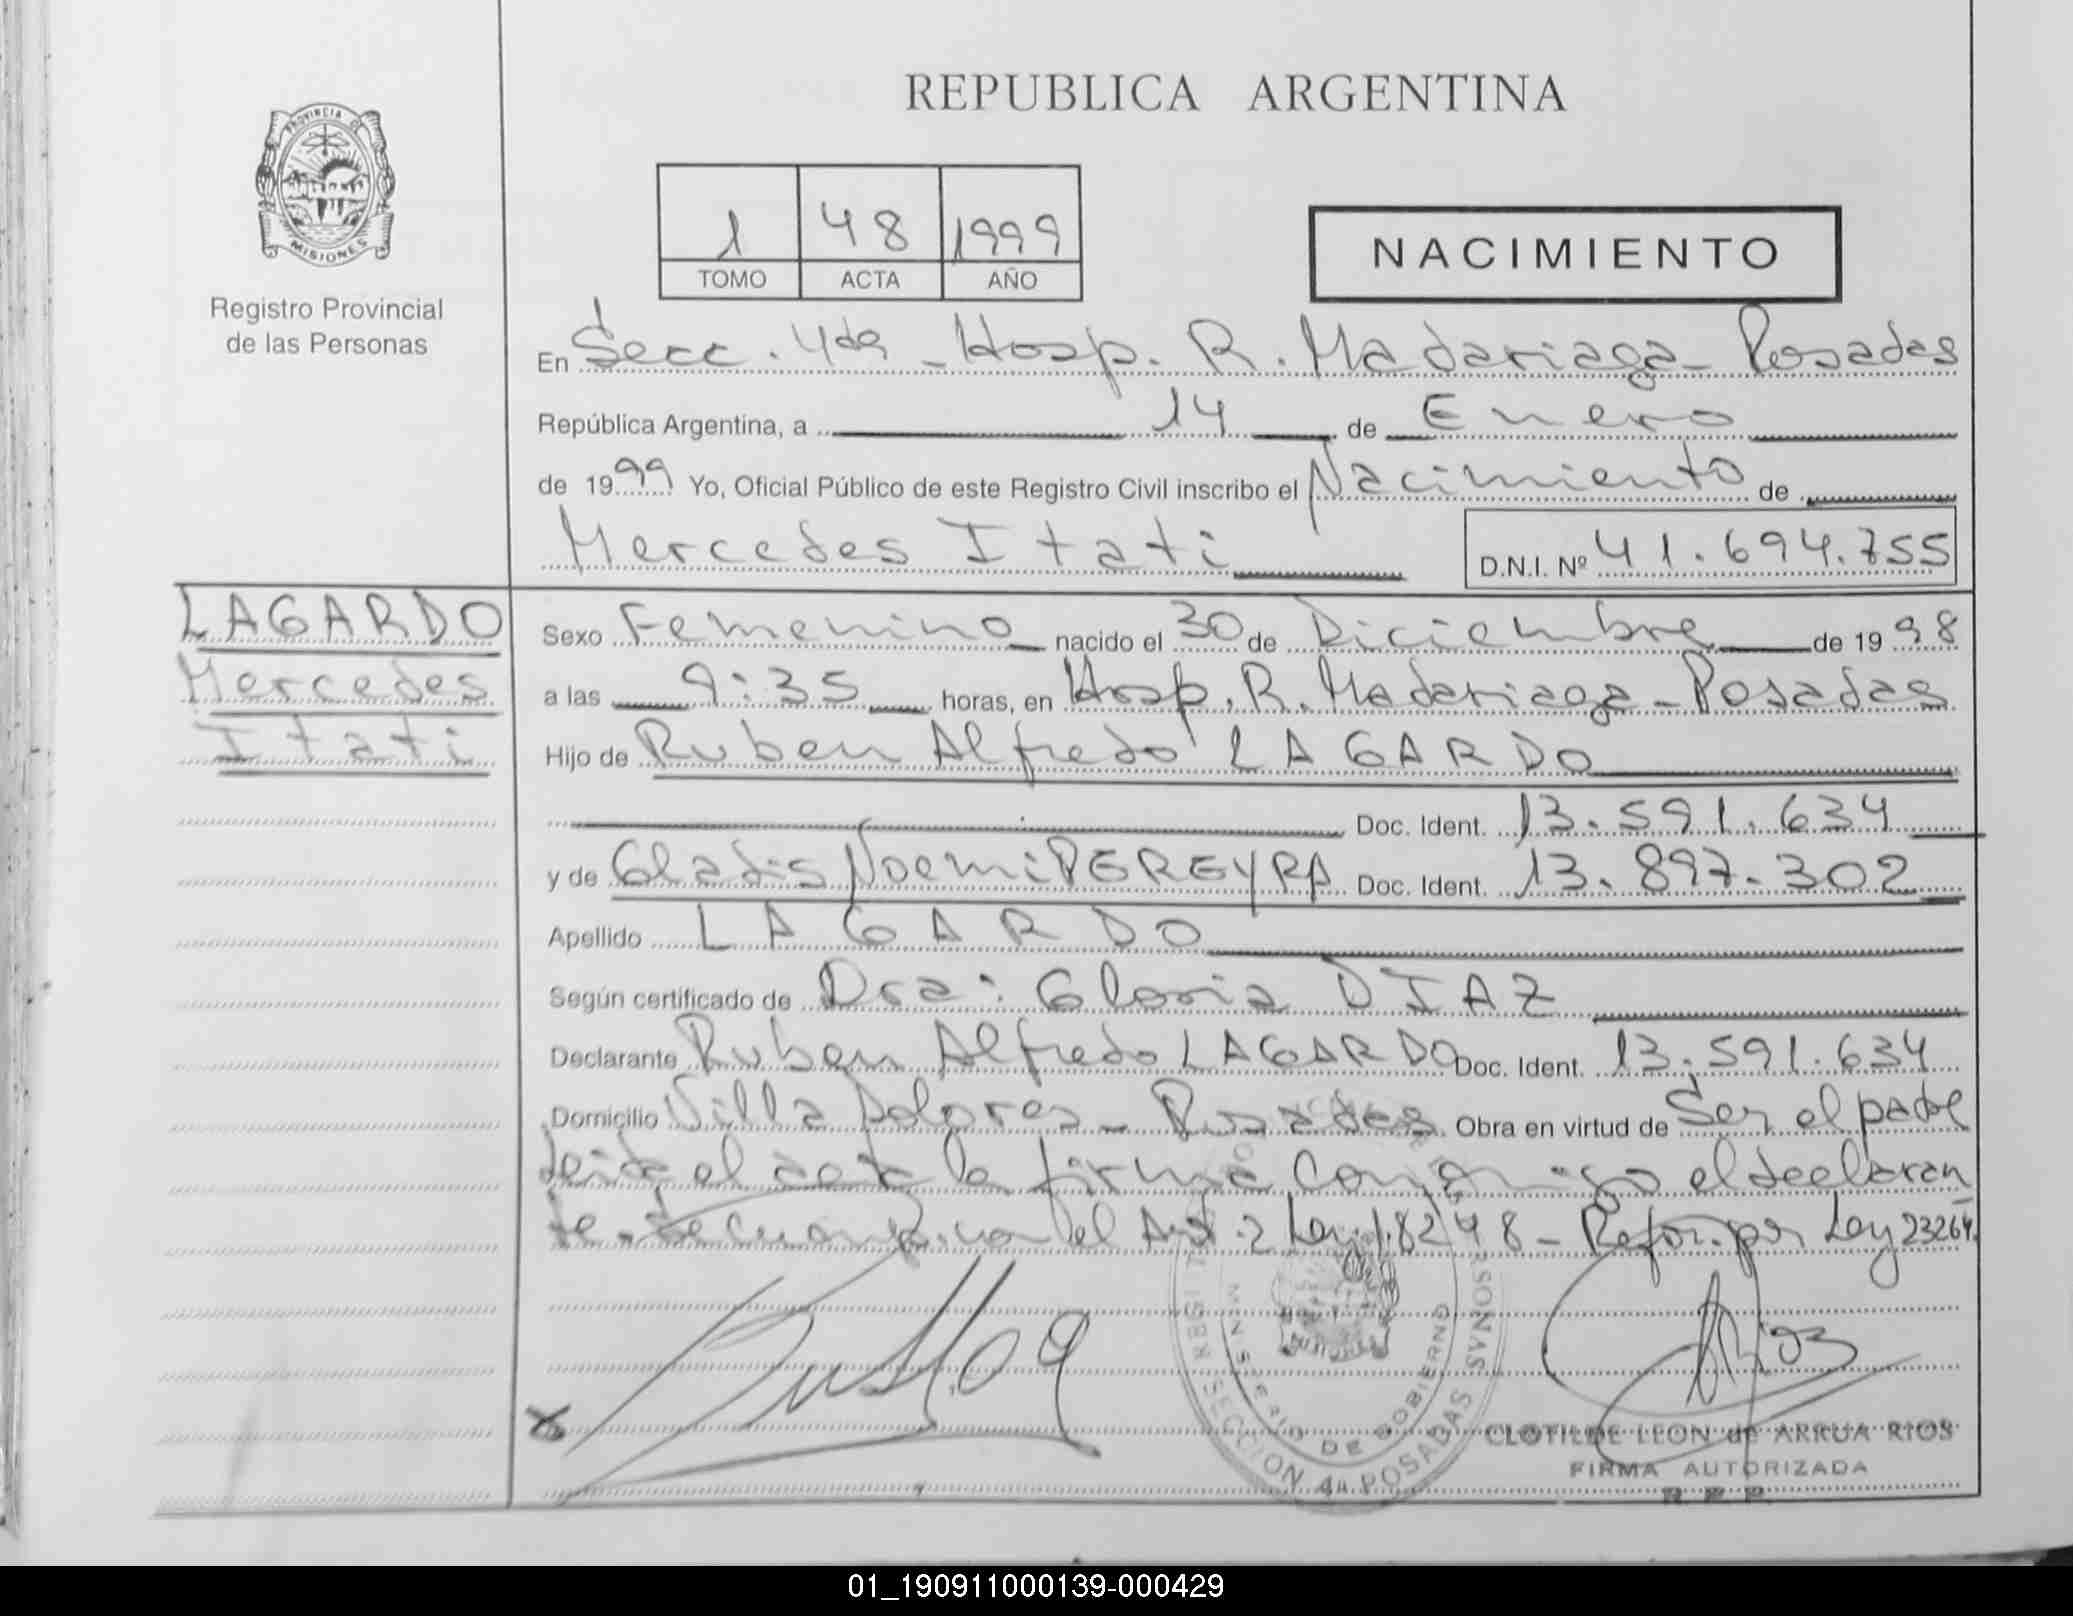 REPUBLICA ARGENTINA
PROVINCIA DE
MISIONES
Registro Provincial
de las Personas
1 48 1999
TOMO ACTA AÑO
NACIMIENTO
En Secc. 4da - Hosp. R. Madariaga - Posadas
República Argentina, a 14 de Enero
de 1999 Yo, Oficial Público de este Registro Civil inscribo el Nacimiento de
Mercedes Itati D.N.I. Nº 41.694.755
LAGARDO
Mercedes
Itati
Sexo Femenino nacido el 30 de Diciembre de 1998
a las 9:35 horas, en Hosp. R. Madariaga - Posadas
Hijo de Ruben Alfredo LAGARDO
Doc. Ident. 13.591.634
y de Gladis Noemi PEREYRA Doc. Ident. 13.897.302
Apellido LAGARDO
Según certificado de Dra: Gloria DIAZ
Declarante Ruben Alfredo LAGARDO Doc. Ident. 13.591.634
Domicilio Villa Dolores - Posadas Obra en virtud de Ser el padre
leida el acta la firma conmigo el declaran
te - de cuerp. con el Art. 2 Ley 18248 - Refor. por Ley 23264.
MINISTERIO DE GOBIERNO
SECCION 4a POSADAS
CLOTILDE LEON de ARRUA RIOS
FIRMA AUTORIZADA
R P P
01_190911000139-000429